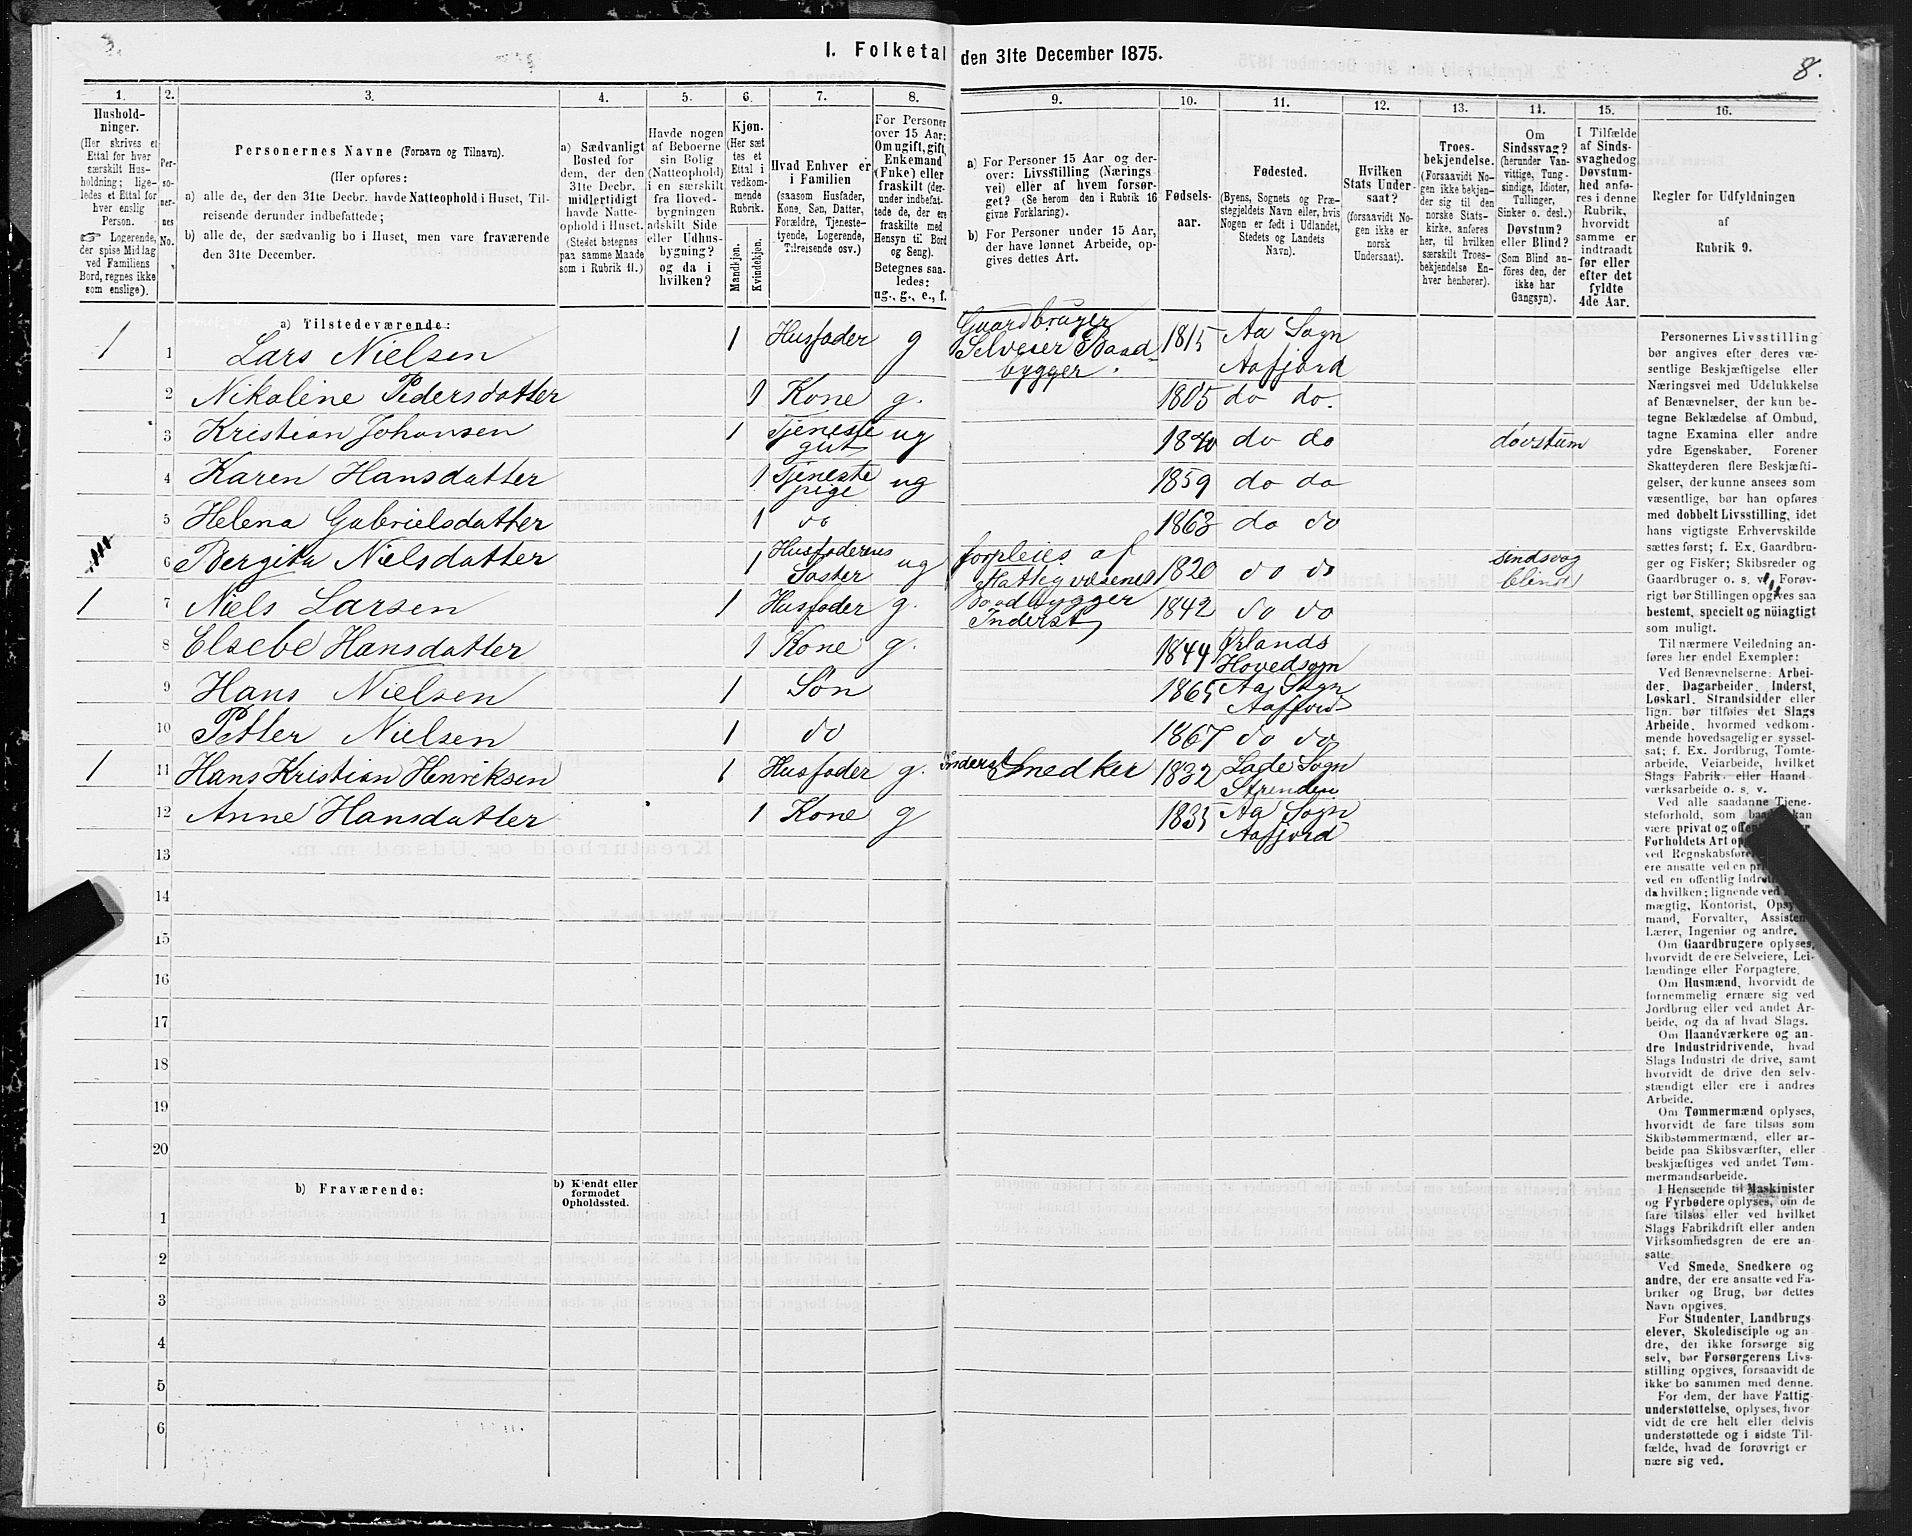 1. Folketal den 31te December 1875.
8.
1. 2. 3. 4. 5. 6. 7. 8. 9. 10. 11. 12. 13. 14. 15. 16.
Hushold-
ninger.
(Her skrives et
Ettal for hver
særskilt Hus-
holdning; lige-
ledes et Ettal for
hver enslig
Person.
☞ Logerende,
der spise Middag
ved Familiens
Bord, regnes ikke
som enslige).
Per-
sone-
rnes
No.
Personernes Navne (Fornavn og Tilnavn).
(Her opføres:
a) alle de, der den 31te Decbr. havde Natteophold i Huset, Til-
reisende derunder indbefattede;
b) alle de, der sædvanlig bo i Huset, men vare fraværende
den 31te December.
a) Sædvanligt
Bosted for
dem, der den
31te Decbr.
midlertidigt
havde Natte-
ophold i Huset.
(Stedet betegnes
paa samme Maade
som i Rubrik 11.)
Havde nogen
af Beboerne
sin Bolig
(Natteophold)
i en særskilt
fra Hoved-
bygningen
adskilt Side
eller Udhus-
bygning?
og da i
hvilken?
Kjøn.
(Her sæt-
tes et
Ettal i
vedkom-
mende
Rubrik.
Mandkjøn.
Kvindekjøn.
Hvad Enhver er
i Familien
(saasom Husfader,
Kone, Søn, Datter,
Forældre, Tjeneste-
tyende, Logerende,
Tilreisende osv.)
For Personer
over 15 Aar:
Om ugift, gift,
Enkemand
(Enke) eller
fraskilt
Betegnes saa-
ledes:
ug., g., e., f.
a) For Personer 15 Aar og der-
over: Livsstilling (Nærings-
vei) eller af hvem forsør-
get? (Se herom den i Rubrik 16
givne Forklaring).
b) For Personer under 15 Aar,
der have lønnet Arbeide, op-
gives dettes Art.
Fødsels-
aar.
Fødested.
(Byens, Sognets og Præ-
stegjeldets Navn eller, hvis
Nogen er født i Udlandet,
Stedets og Landets
Navn).
Hvilken
Stats Under-
saat?
(forsaavidt No-
gen ikke er
norsk
Undersaat).
Troes-
bekjendelse.
(Forsaavidt No-
gen ikke bekjen-
der sig til den
norske Stats-
kirke, anføres
her, til hvilken
særskilt Troes-
bekjendelse En-
hver henhører).
Om
Sindssvag?
(herunder Van-
vittige, Tung-
sindige, Idioter,
Tullinger,
Sinker o. desl.)
Døvstum?
eller Blind?
(Som Blind an-
føres den, der
ikke har
Gangsyn).
I Tilfælde
af Sinds-
svaghedog
Døvstum-
hed anfø-
res i denne
Rubrik,
hvorvidt
samme er
indtraadt
før eller
efter det
fyldte
4de Aar.
Regler for Udfyldningen
af
Rubrik 9.
a) Tilstedeværende:
1 1 Lars Nielsen 1 Husfader g Gaardbruger Selveier Baadbygger. 1815 Aa Sogn Aafjord
2 Nikoline Pedersdatter 1 Kone g. 1805 do do.
3 Kristian Johansen 1 Tjeneste gut ug 1840 do do døvstum
4 Karen Hansdatter 1 Tjeneste pige ug 1859 do do
5 Helena Gabrielsdatter 1 do 1863 do do
6 Bergita Nielsdatter 1 Husfaderens Søster ug forpleies af Fattigvæsenet 1820 do do sindsvag blind
1 7 Niels Larsen 1 Husfader g. Baadbygger Inderst 1842 do do
8 Elsebe Hansdatter 1 Kone g. 1844 Ørlands Hovedsogn
9 Hans Nielsen 1 Søn 1865 Aa Sogn Aafjord
10 Petter Nielsen 1 do 1867 do do
1 11 Hans Kristian Henriksen 1 Husfader g. Inderst Snedker 1832 Lade Sogn Strinden
12 Anne Hansdatter 1 Kone g 1835 Aa Sogn Aafjord
13
14
15
16
17
18
19
20
b) Fraværende:
b) Kjendt eller
formodet
Opholdssted.
1
2
3
4
5
6
Personernes Livsstilling
bør angives efter deres væ-
sentlige Beskjæftigelse eller
Næringsvei med Udelukkelse
af Benævnelser, der kun be-
tegne Beklædelse af Ombud,
tagne Examina eller andre
ydre Egenskaber. Forener
Skatteyderen flere Beskjæfti-
gelser, der kunne ansees som
væsentlige, bør han opføres
med dobbelt Livsstilling, idet
hans vigtigste Erhvervskilde
sættes først; f. Ex. Gaardbru-
ger og Fisker; Skibsreder og
Gaardbruger o. s. v. Forøv-
rigt bør Stillingen opgives saa
bestemt, specielt og nøiagtigt
som muligt.
Til nærmere Veiledning an-
føres her endel Exempler:
Ved Benævnelserne: Arbei-
der, Dagarbeider, Inderst,
Løskarl, Strandsidder eller
lign. bør tilføies det Slags
Arbeide, hvormed vedkom-
mende hovedsagelig er syssel-
sat; f. Ex. Jordbrug, Tomte-
arbeide, Veiarbeide, hvilket
Slags Fabrik- eller Haand-
værksarbeide o. s. v.
Ved alle saadanne Tjene-
steforhold, som
være privat og
Forholdets Art
ved
ere ansatte ved en
ved en offentlig
da hvilken; lignende ved
mægtig, Kontorist,
mand, Forvalter,
Lærer, Ingeniør og andre.
Om Gaardbrugere oplyses,
hvorvidt de ere Selveiere, Lei-
lændinge eller Forpagtere.
Om Husmænd, hvorvidt de
fornemmelig ernære sig ved
Jordbrug eller ved andet Ar-
beide, og da af hvad Slags.
Om Haandværkere og an-
dre Industridrivende, hvad
Slags Industri de drive, samt
hvorvidt de drive den selv-
stændigt eller ere i andres
Arbeide.
Om Tømmermænd oplyses,
hvorvidt de fare tilsøs som
Skibstømmermænd, eller ar-
beide paa Skibsværfter, eller
beskjæftiges ved andet Tøm-
mermandsarbeide.
I Henseende til Maskinister
og Fyrbødere oplyses, om de
fare tilsøs eller ved hvilket
Slags Fabrikdrift eller anden
Virksomhedsgren de ere an-
satte.
Ved Smede, Snedkere og
andre, der ere ansatte ved Fa-
briker og Brug, bør dettes
Navn opgives.
For Studenter, Landbrugs-
elever, Skoledisciple og an-
dre, der ikke forsørge sig
selv, bør Forsørgerens Livs-
stilling opgives, forsaavidt de
ikke bo sammen med denne.
For dem, der have Fattig-
understøttelse, oplyses, hvor-
vidt de ere helt eller delvis
understøttede og i sidste Til-
fælde, hvad de forøvrigt er-
nære sig ved.